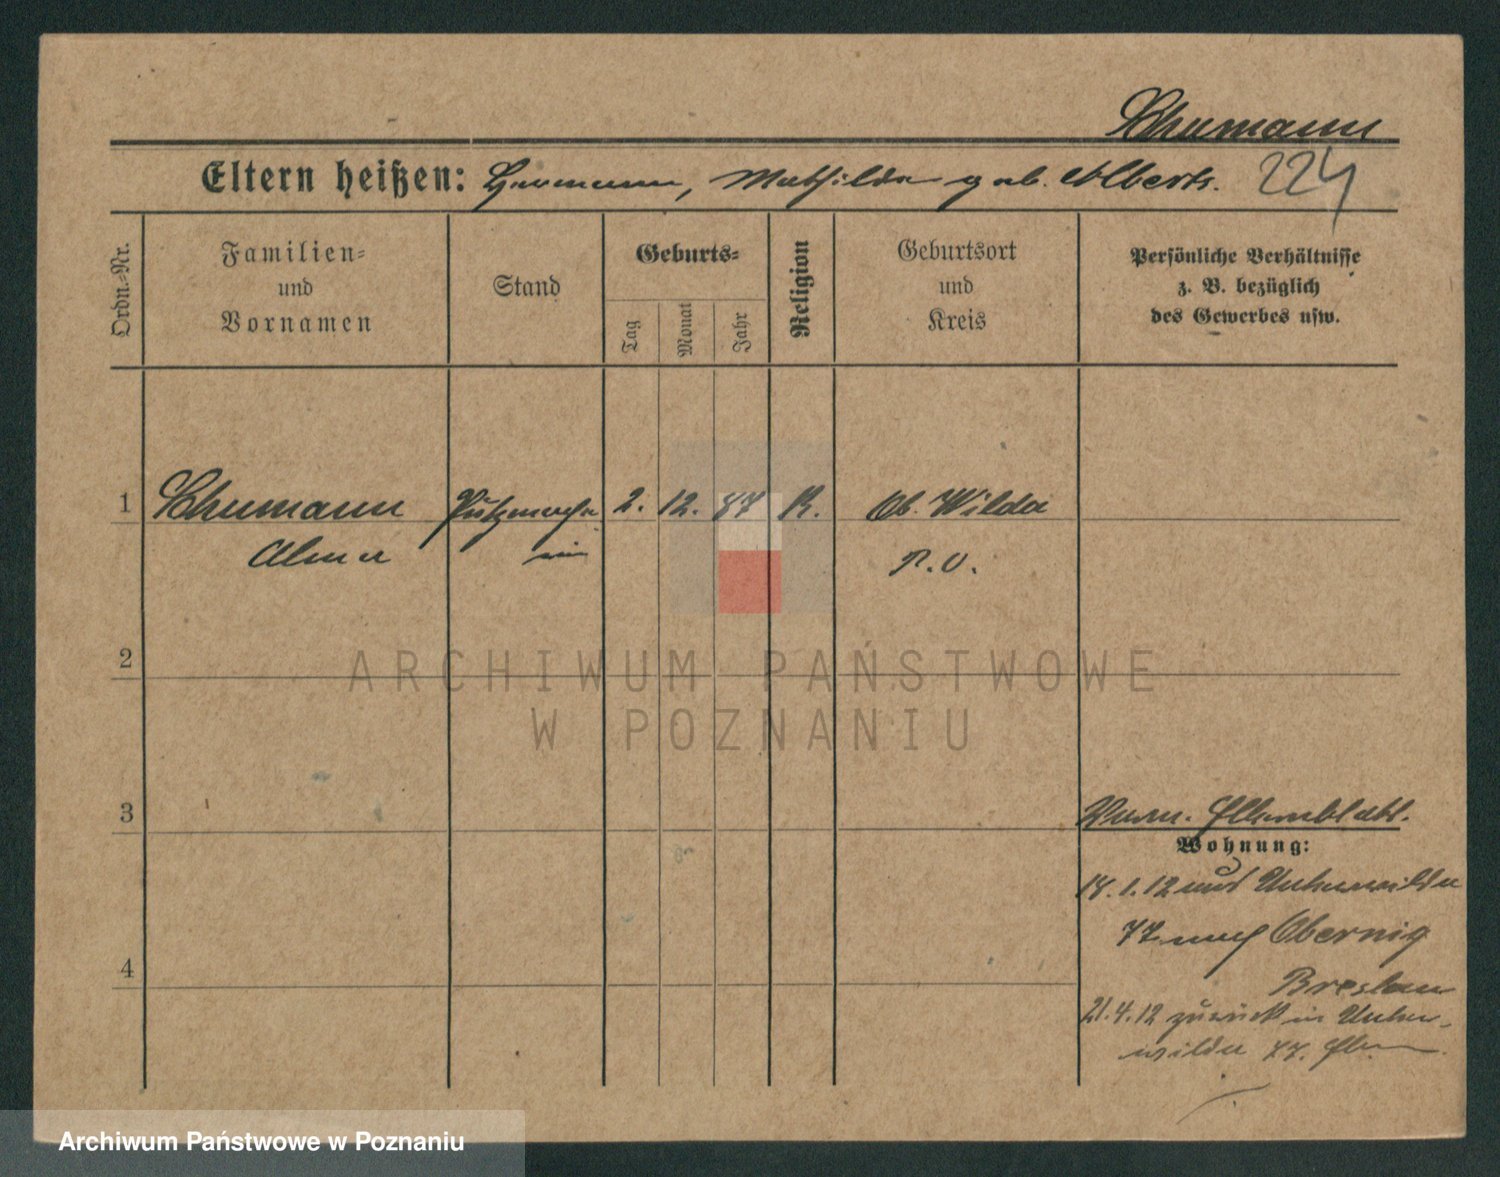 Schumann
Eltern heißen: Hermann, Mathilde geb. Alberts.
224
Ordn.-Nr.
Familien-
und
Vornamen
Stand
Geburts-
Tag
Monat
Jahr
Religion
Geburtsort
und
Kreis
Persönliche Verhältnisse
z. B. bezüglich
des Gewerbes usw.
1
Schumann
Putzmache
rin
2. 12. 87
K.
Ob. Wilda
P. O.
Alma
2
3
4
Verm. Elternblatt.
Wohnung:
18.1.12 aus Unterwilda
77 nach Obernig
Breslau
21.4.12 zurück in Unter-
wilda 77.
ARCHIWUM PAŃSTWOWE
W POZNANIU
Archiwum Państwowe w Poznaniu